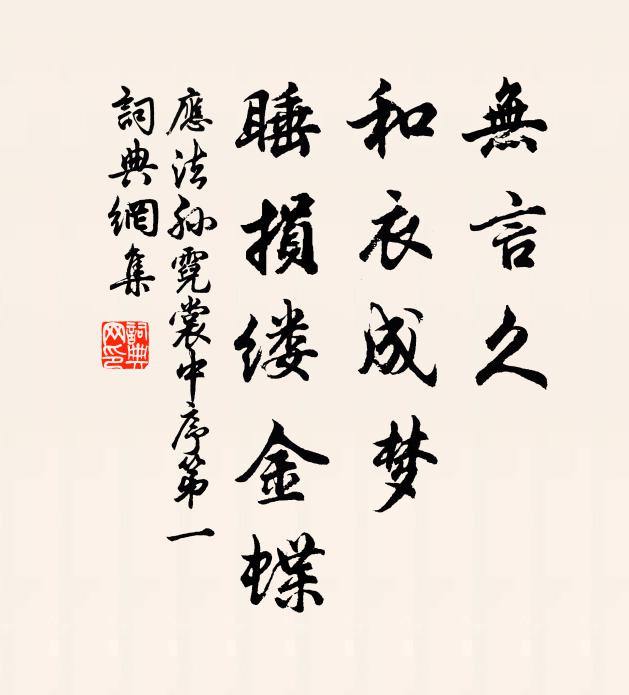 無言久
和衣成梦
睡損缕金蝶
應法孙霓裳中序第一
詞典網集
詞典网印